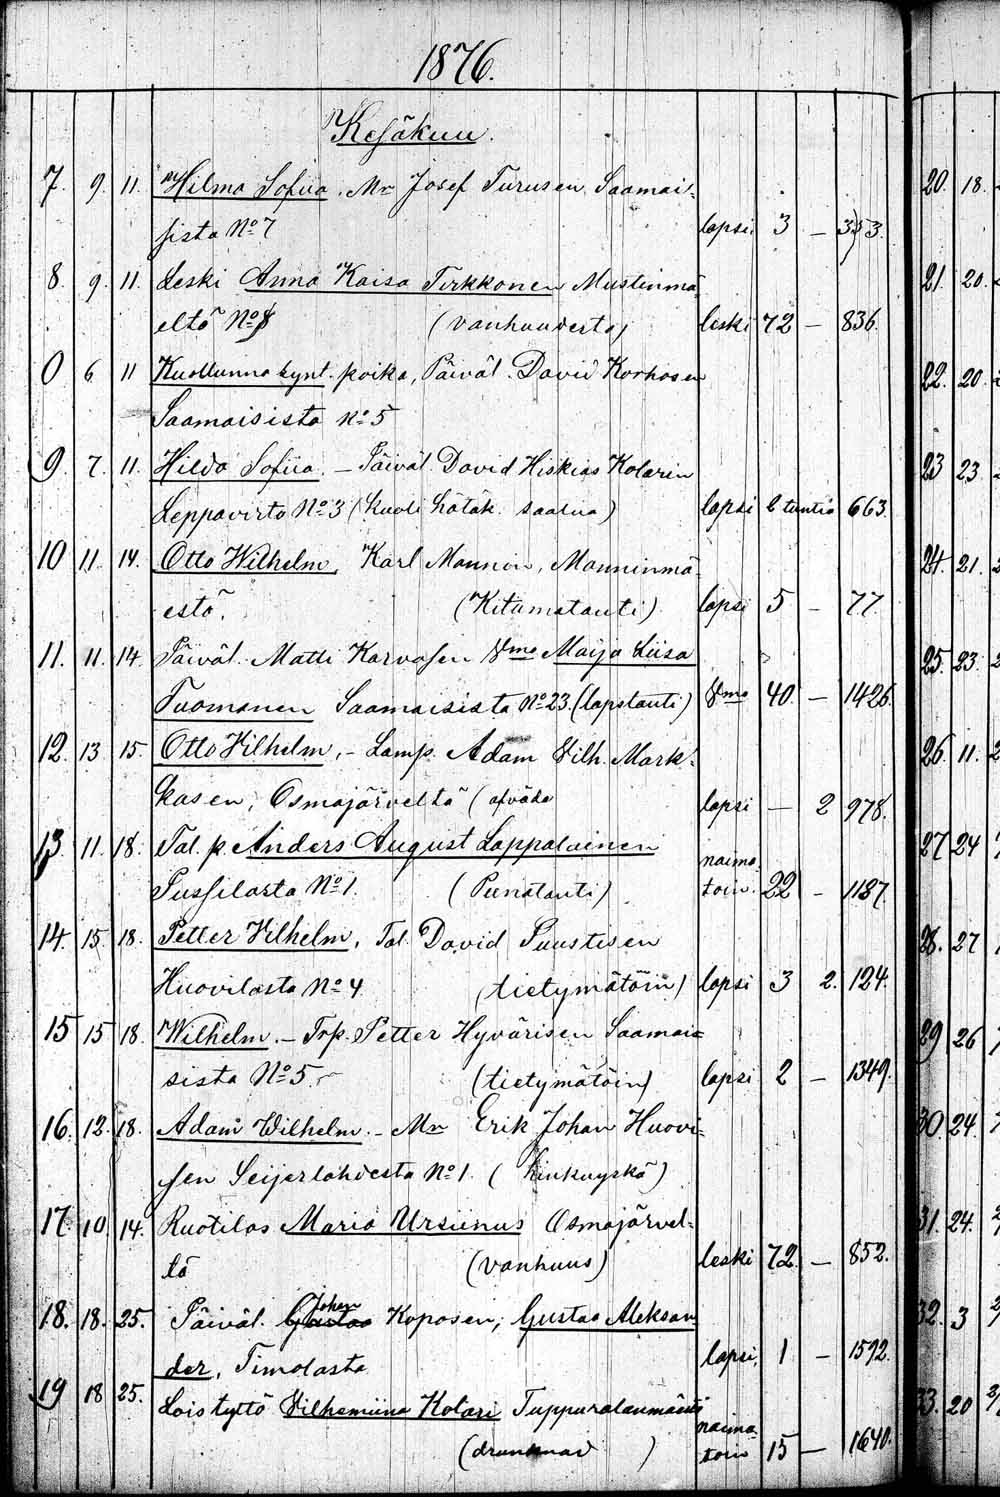 1876.
Kesäkuu.
7. 9. 11. Hilma Sofiia, Mr Josef Turusen Saamai-
sista No 7 lapsi. 3 – 353.
8. 9. 11. Leski Anna Kaisa Tirkkonen Mustinmä-
eltä No 8 (vanhuudesta) leski 72 – 836.
0 6 11 Kuollunna synt. poika, Päiväl. David Korhosen
Saamaisista No 5
9. 7. 11. Hilda Sofiia. – Päiväl. David Hiskias Kolarin
Leppävirta No 3 (kuoli hätäk. saatua) lapsi 2 tuntia 663.
10 11 14. Otto Wilhelm, Karl Mannin, Manninmä-
estä. (Kitumatauti) lapsi 5 – 77
11. 11. 14. Päiväl. Matti Karvosen Vmo Maija Liisa
Tuomanen Saamaisista No 23. (lapstauti) Vmo 40. – 1426.
12. 13 15. Otto Vilhelm, – Lamp. Adam Vilh. Mark-
kasen, Osmajärveltä ( lapsi – 2 978.
13. 11. 18. Tal. p. Anders August Lappalainen naima-
Pussilasta No 1. (Punatauti) toin. 22 – 1187.
14. 15. 18. Petter Vilhelm, Tal. David Puustisen
Huovilasta No 4 (tietymätöin) lapsi 3 2. 124.
15 15 18. Wilhelm. – Trp. Petter Hyvärisen Saamai-
sista No 5. (tietymätöin) lapsi 2 – 1349.
16. 12. 18. Adam Wilhelm. – Mr Erik Johan Huovi-
sen Seijerlahdesta No 1. (hinkuyskä)
17 10. 14. Ruotilas Maria Ursinus Osmajärvel-
tä (vanhuus) leski 72. – 852.
18. 18. 25. Päiväl. Johan Koposen, Gustaa Aleksan
der, Timolasta lapsi, 1 – 1592.
19 18 25. Lois tyttö Vilhemiina Kolari Tuppuralanmäeltä naima-
(drunknad) toin 15 – 1640.
20. 18.
21. 20.
22. 20.
23 23.
24. 21.
25. 23.
26. 11.
27 24
28. 27
29 26
30. 24
31. 24.
32. 3
33. 20